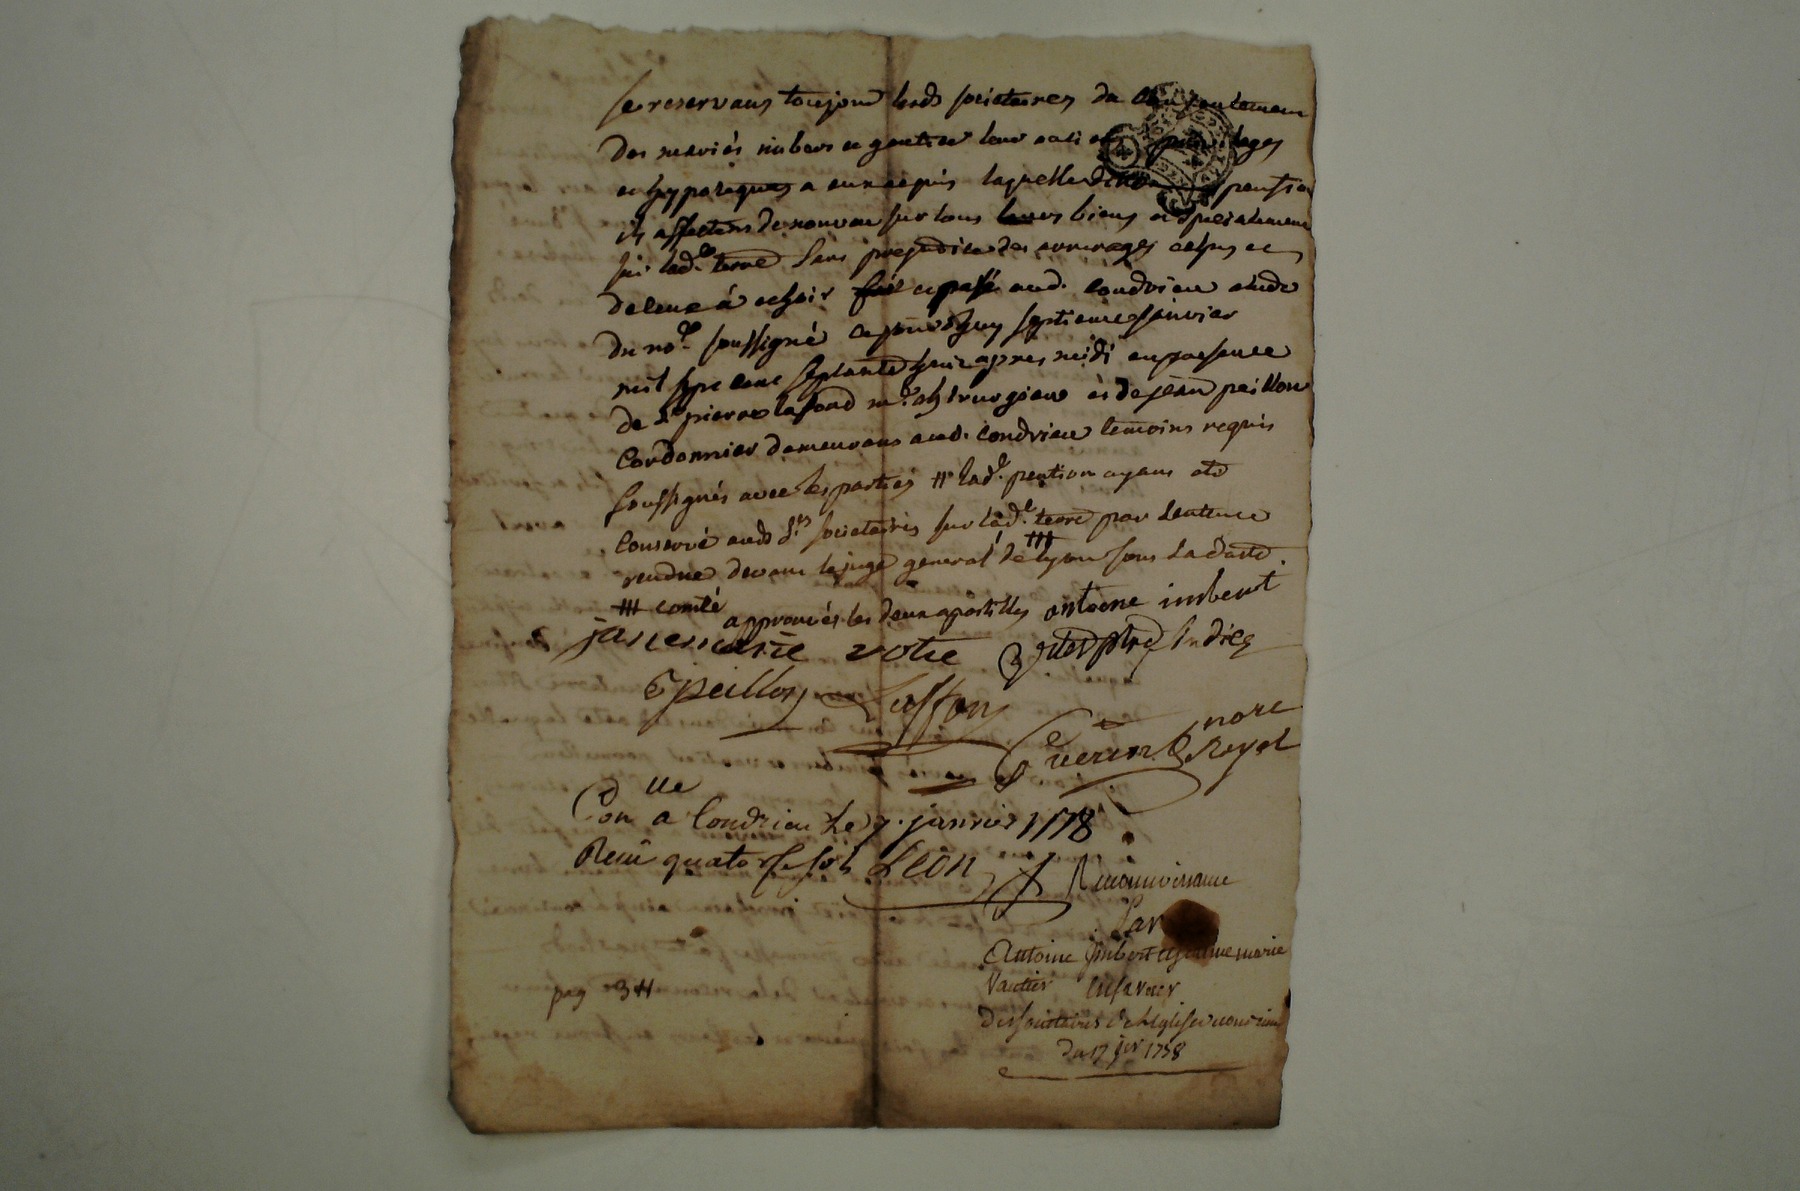 se reservans toujours lesds societaires du consentement
des mariés imbert et gautier leur acti et privileges
et hypoteques a eux acquis laquelle pention
ils affectent de nouveau sur tous leurs biens et specialement
sur lad.e terre sans prejudice des arrerages echus et
de ceux à echoir fait et passé aud. Condrieu etude
du no.re soussigné ce jourdhuy septieme janvier
mil sept cent septante huit apres midi en presence
de Sr pierre laffond me chirurgien et de jean peillon
Cordonnier demeurans aud. Condrieu temoins requis
soussignés avec les parties # lad.e pention ayant eté
Conservé auds Srs societaires sur lad.e terre par sentence
rendue devant le juge general de # lyon sous sa datte.
# comté approuvés les deux apostilles antoine imbert
jane marie votie sindicq
peillon Laffon
Guerin Reyol nore
Con.lle a Condrieu le 7. janvier 1778
Receu quatorse sols Leon
Reconnoissance
Par
Antoine Imbert et jeanne marie
Vautier en faveur
Des societaires de l'eglise de condrieu
du 17 jer 1758
pag 3#